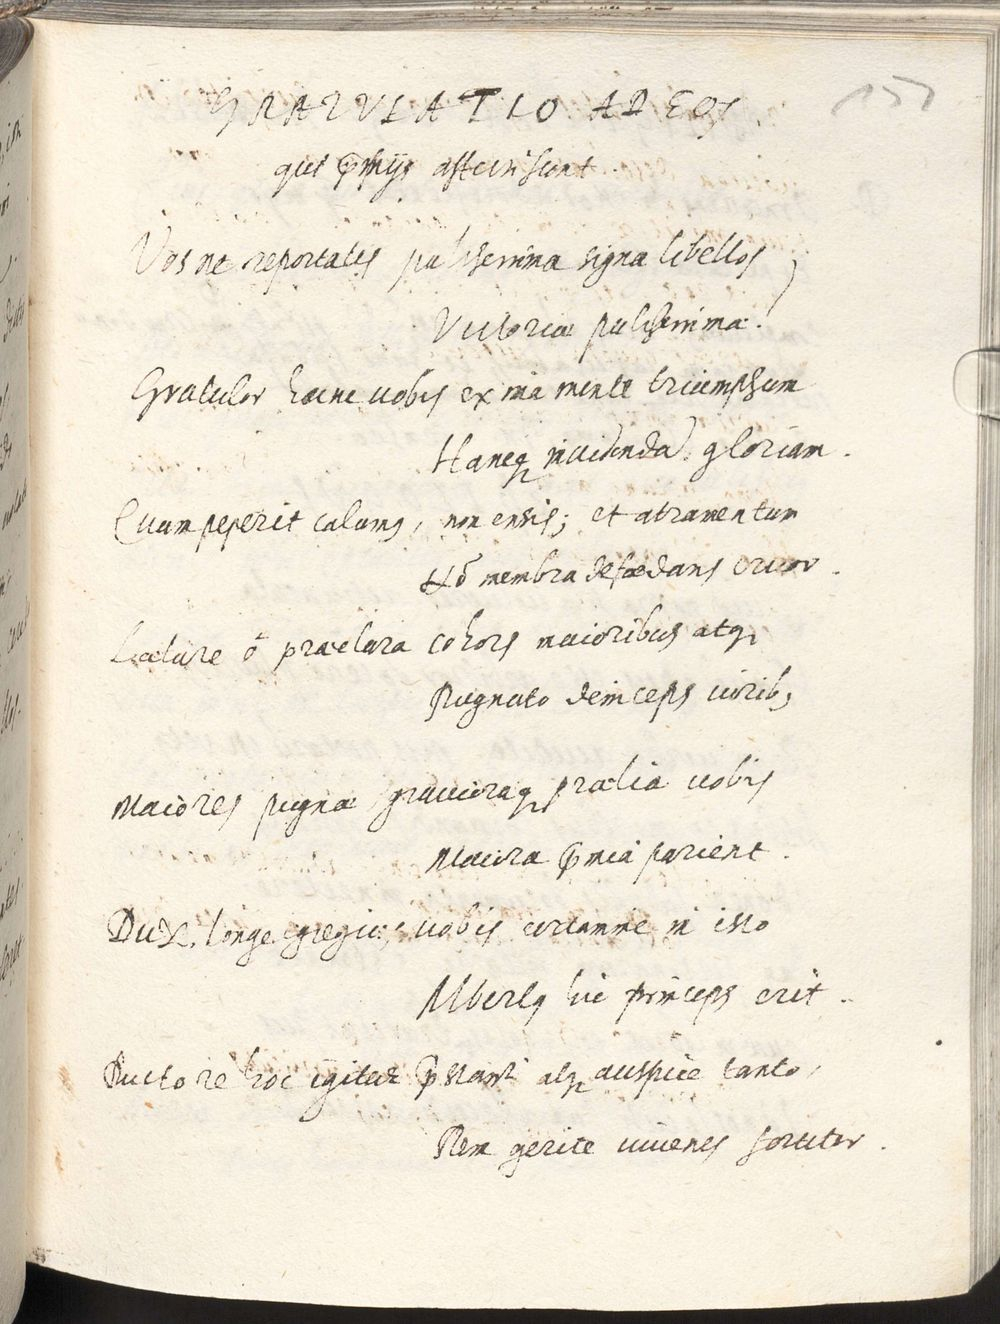 157
GRATVLATIO AD EOS
qui p̄mijs affecti sunt.
Vos ne reportatis pulcherrima signa libellos,
Victoriae pulcherrimae.
Gratulor hocne uobis ex ima mente triumphum
Hancq; inuidendā gloriam.
Quam peperit calamꝰ, non ensis; et atramentum
Hō membra defoedans cruor.
Laetare ô praeclara cohors maioribus atq;
Pugnato deinceps uirib;
Maiores pugnae grauioraq; praelia uobis
Maiora p̄mia parient.
Dux longe egregius uobis certamine in isto
Albertꝰ hic princeps erit.
Ductore hoc igitur p̄stanti atq; auspice tanto,
Rem gerite iuuenes fortiter.